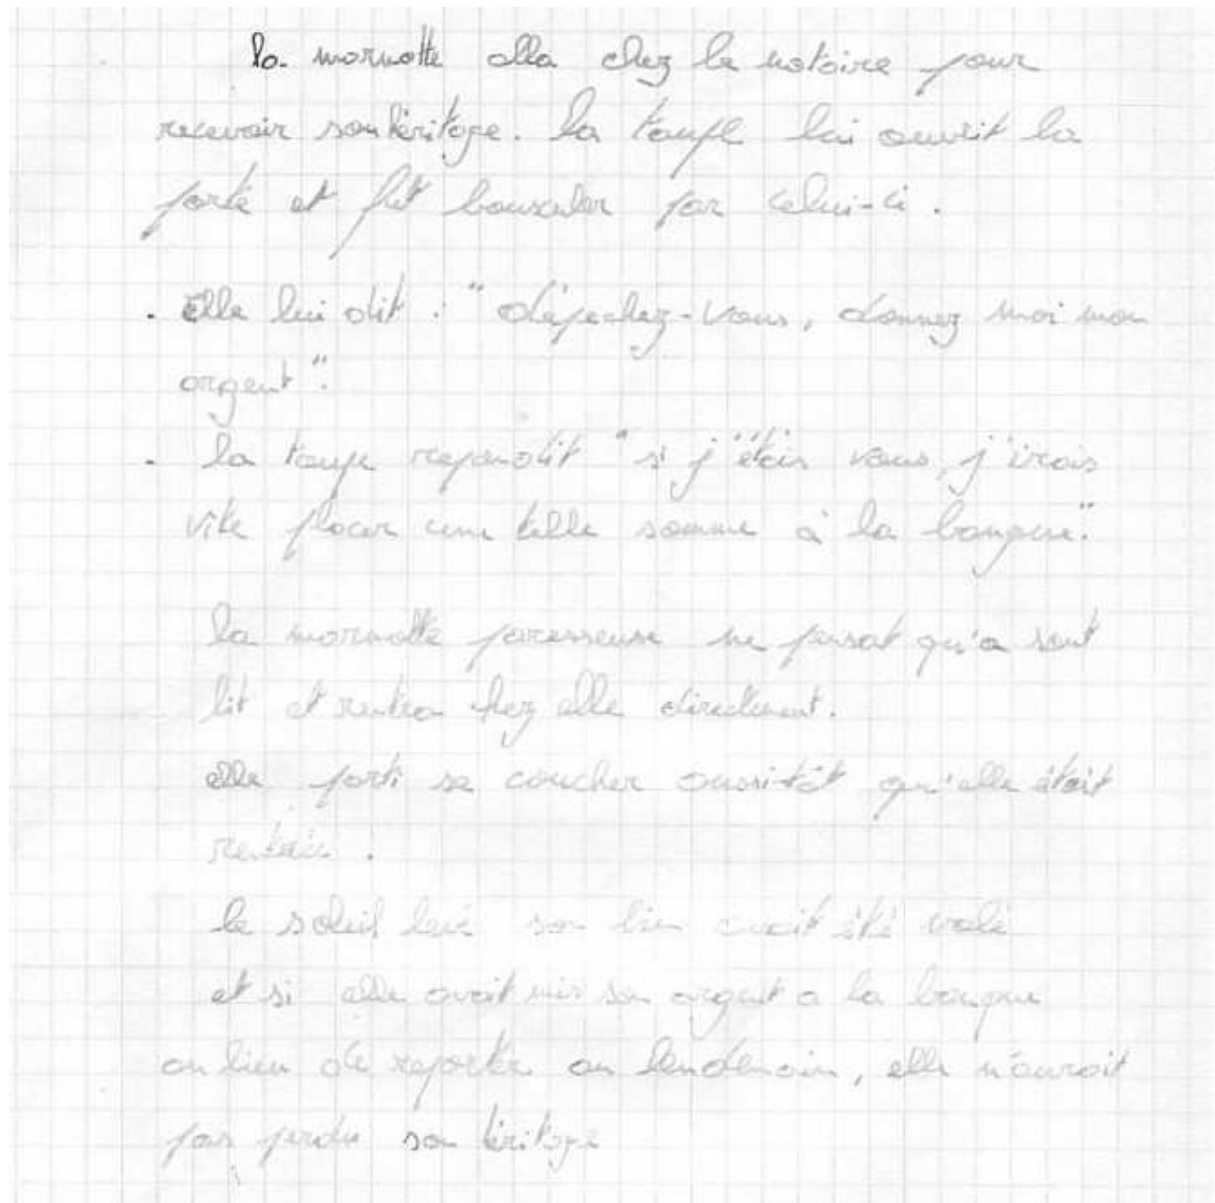 la marmotte alla chez le notaire pour
recevoir son héritage. la taupe lui ouvrit la
porte et fût bousculer par celui-ci.
. Elle lui dit : " dépechez-vous, donnez moi mon
argent".
. la taupe repondit " si j'étais vous, j'irais
vite placer une telle somme à la banque".
la marmotte paresseuse ne pensat qu'a sont
lit et rentra chez elle directement.
elle parti se coucher aussi-tôt qu'elle était
rentrée.
le soleil levé son bien avait été volé
et si elle avait mis son argent a la banque
au lieu de reporter au lendemain, elle n'aurait
pas perdu son héritage